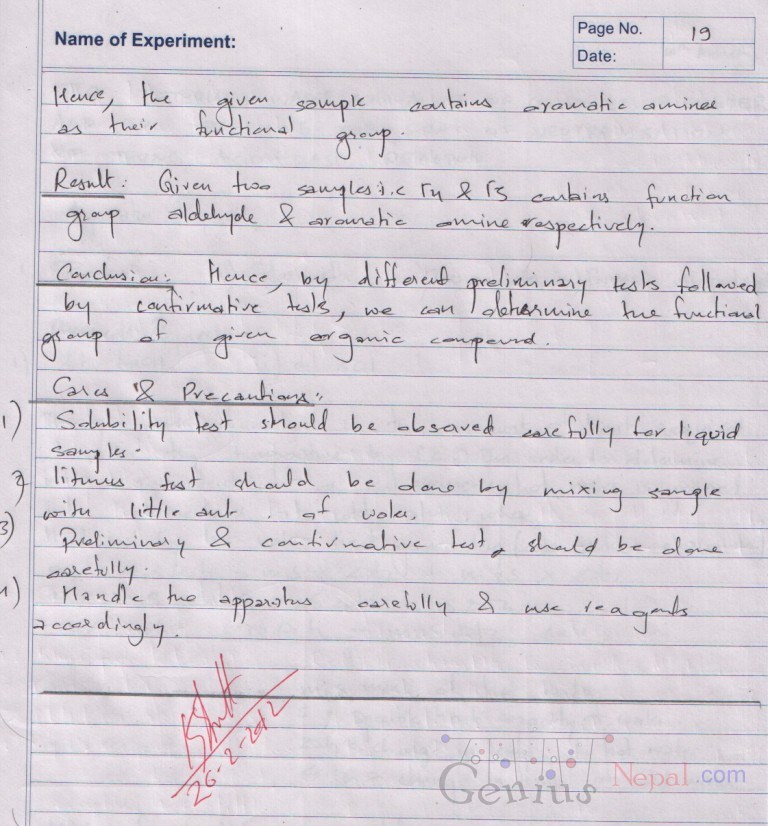 Name of Experiment:
Page No. 19
Date:
Hence, the given sample contains aromatic amines
as their functional group.
Result: Given two samples i.e Γ4 & Γ5 contains function
group aldehyde & aromatic amine respectively.
Conclusion: Hence, by different preliminary tests followed
by confirmative tests, we can determine the functional
group of given organic compound.
Cares & Precautions:
1) Solubility test should be observed carefully for liquid
samples.
2 litmus test should be done by mixing sample
with little amt. of water.
3) Preliminary & confirmative test, should be done
carefully.
4) Handle the apparatus carefully & use reagents
accordingly.
26-2-2012
Genius Nepal.com